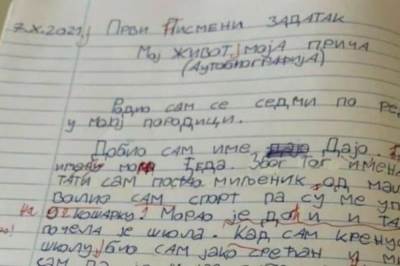 7.X.2021. Први Писмени задатак
Мој живот, моја прича
(Аутобиографија)
Родио сам се седми по ред
у мојој породици.
Добио сам име Дајо.
имену мог деда. Због тог имена
тати сам постао миљеник од мал
Волио сам спорт па су ме уп
кошарку. Морао је доћи и та
почела је школа. Кад сам крену
школу, био сам јако срећан и м
сам